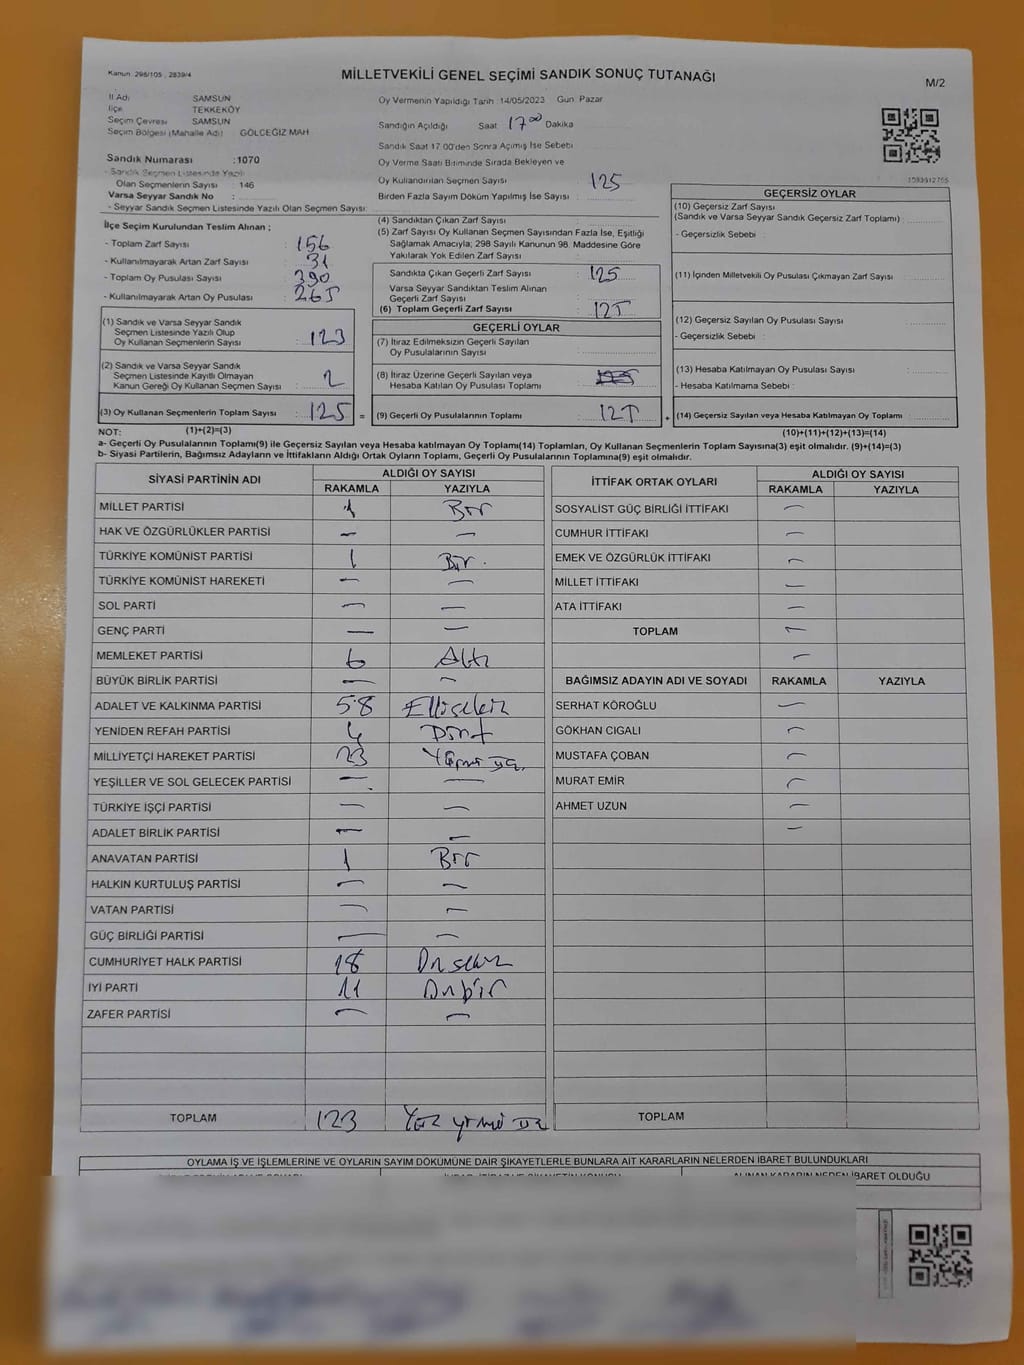 Kanun: 298/105 , 2839/4
MİLLETVEKİLİ GENEL SEÇİMİ SANDIK SONUÇ TUTANAĞI
M/2
İl Adı SAMSUN
İlçe TEKKEKÖY
Seçim Çevresi SAMSUN
Seçim Bölgesi (Mahalle Adı) : GÖLCEĞİZ MAH
Sandık Numarası :1070
- Sandık Seçmen Listesinde Yazılı
Olan Seçmenlerin Sayısı : 146
Varsa Seyyar Sandık No :
- Seyyar Sandık Seçmen Listesinde Yazılı Olan Seçmen Sayısı:
Oy Vermenin Yapıldığı Tarih :14/05/2023 Gün: Pazar
Sandığın Açıldığı Saat 17 00 Dakika
Sandık Saat 17:00'den Sonra Açımış İse Sebebi
Oy Verme Saati Bitiminde Sırada Bekleyen ve
Oy Kullandırılan Seçmen Sayısı 125
Birden Fazla Sayım Döküm Yapılmış İse Sayısı :
İlçe Seçim Kurulundan Teslim Alınan ;
- Toplam Zarf Sayısı : 156
- Kullanılmayarak Artan Zarf Sayısı : 31
- Toplam Oy Pusulası Sayısı : 390
- Kullanılmayarak Artan Oy Pusulası : 265
(1) Sandık ve Varsa Seyyar Sandık
Seçmen Listesinde Yazılı Olup
Oy Kullanan Seçmenlerin Sayısı : 123
(2) Sandık ve Varsa Seyyar Sandık
Seçmen Listesinde Kayıtlı Olmayan
Kanun Gereği Oy Kullanan Seçmen Sayısı : 2
(3) Oy Kullanan Seçmenlerin Toplam Sayısı : 125 =
(4) Sandıktan Çıkan Zarf Sayısı :
(5) Zarf Sayısı Oy Kullanan Seçmen Sayısından Fazla İse, Eşitliği
Sağlamak Amacıyla; 298 Sayılı Kanunun 98. Maddesine Göre
Yakılarak Yok Edilen Zarf Sayısı :
Sandıkta Çıkan Geçerli Zarf Sayısı : 125
Varsa Seyyar Sandıktan Teslim Alınan
Geçerli Zarf Sayısı :
(6) Toplam Geçerli Zarf Sayısı : 125
GEÇERLİ OYLAR
(7) İtiraz Edilmeksizin Geçerli Sayılan
Oy Pusulalarının Sayısı :
(8) İtiraz Üzerine Geçerli Sayılan veya
Hesaba Katılan Oy Pusulası Toplamı :
(9) Geçerli Oy Pusulalarının Toplamı : 125 +
GEÇERSİZ OYLAR
(10) Geçersiz Zarf Sayısı
(Sandık ve Varsa Seyyar Sandık Geçersiz Zarf Toplamı) :
- Geçersizlik Sebebi :
(11) İçinden Milletvekili Oy Pusulası Çıkmayan Zarf Sayısı :
(12) Geçersiz Sayılan Oy Pusulası Sayısı :
- Geçersizlik Sebebi :
(13) Hesaba Katılmayan Oy Pusulası Sayısı :
- Hesaba Katılmama Sebebi :
(14) Geçersiz Sayılan veya Hesaba Katılmayan Oy Toplamı :
NOT: (1)+(2)=(3) (10)+(11)+(12)+(13)=(14)
a- Geçerli Oy Pusulalarının Toplamı(9) ile Geçersiz Sayılan veya Hesaba katılmayan Oy Toplamı(14) Toplamları, Oy Kullanan Seçmenlerin Toplam Sayısına(3) eşit olmalıdır. (9)+(14)=(3)
b- Siyasi Partilerin, Bağımsız Adayların ve İttifakların Aldığı Ortak Oyların Toplamı, Geçerli Oy Pusulalarının Toplamına(9) eşit olmalıdır.
SİYASİ PARTİNİN ADI ALDIĞI OY SAYISI
RAKAMLA YAZIYLA
MİLLET PARTİSİ 1 Bir
HAK VE ÖZGÜRLÜKLER PARTİSİ — —
TÜRKİYE KOMÜNİST PARTİSİ 1 Bir.
TÜRKİYE KOMÜNİST HAREKETİ — —
SOL PARTİ — —
GENÇ PARTİ — —
MEMLEKET PARTİSİ 6 Altı
BÜYÜK BİRLİK PARTİSİ — —
ADALET VE KALKINMA PARTİSİ 58 Ellisekiz
YENİDEN REFAH PARTİSİ 4 Dört
MİLLİYETÇİ HAREKET PARTİSİ 23 Yirmi üç
YEŞİLLER VE SOL GELECEK PARTİSİ — —
TÜRKİYE İŞÇİ PARTİSİ — —
ADALET BİRLİK PARTİSİ — —
ANAVATAN PARTİSİ 1 Bir
HALKIN KURTULUŞ PARTİSİ — —
VATAN PARTİSİ — —
GÜÇ BİRLİĞİ PARTİSİ — —
CUMHURİYET HALK PARTİSİ 18 Onsekiz
İYİ PARTİ 11 Onbir
ZAFER PARTİSİ — —
TOPLAM 123 Yüz yirmi üç
İTTİFAK ORTAK OYLARI ALDIĞI OY SAYISI
RAKAMLA YAZIYLA
SOSYALİST GÜÇ BİRLİĞİ İTTİFAKI —
CUMHUR İTTİFAKI —
EMEK VE ÖZGÜRLÜK İTTİFAKI —
MİLLET İTTİFAKI —
ATA İTTİFAKI —
TOPLAM —
—
BAĞIMSIZ ADAYIN ADI VE SOYADI RAKAMLA YAZIYLA
SERHAT KÖROĞLU —
GÖKHAN CIGALI —
MUSTAFA ÇOBAN —
MURAT EMİR —
AHMET UZUN —
—
TOPLAM
OYLAMA İŞ VE İŞLEMLERİNE VE OYLARIN SAYIM DÖKÜMÜNE DAİR ŞİKAYETLERLE BUNLARA AİT KARARLARIN NELERDEN İBARET BULUNDUKLARI
ALINAN KARARIN NEDEN İBARET OLDUĞU